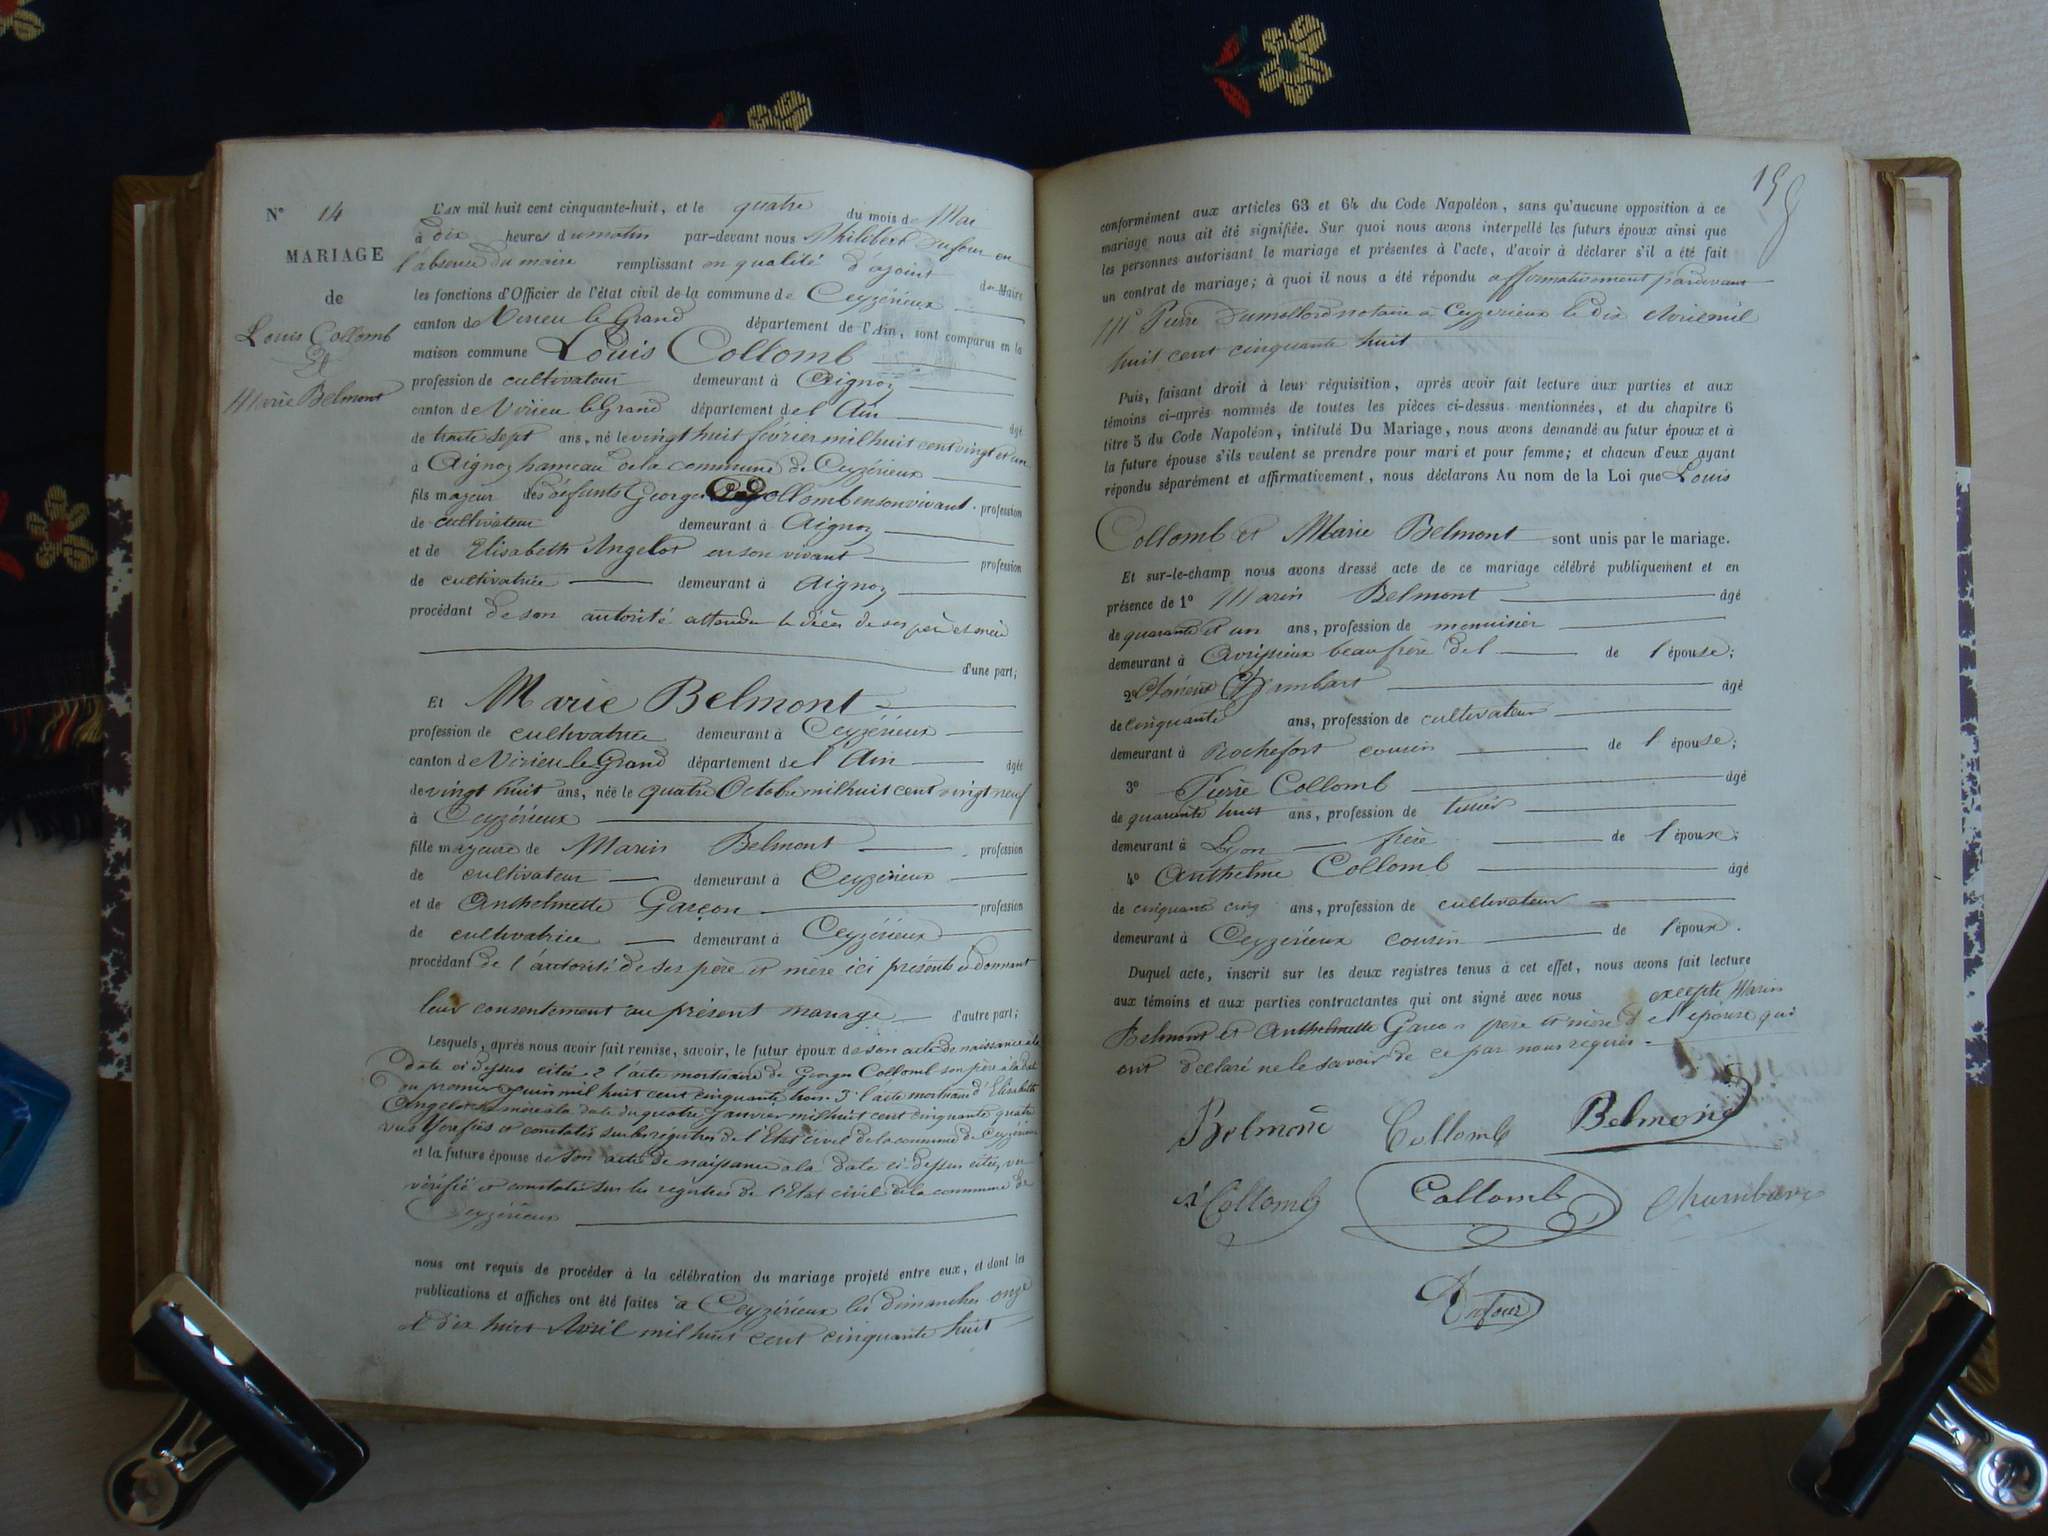 N° 14
MARIAGE
de
Louis Collomb
Et
Marie Belmont
L'AN mil huit cent cinquante-huit, et le quatre du mois de Mai
à dix heures du matin par-devant nous Philibert Dufour en
l'absence du maire remplissant en qualité d'ajoint de Maire
les fonctions d'Officier de l'état civil de la commune de Ceyzérieux
canton de Virieu le Grand département de l'Ain, sont comparus en la
maison commune Louis Collomb
profession de cultivateur demeurant à Aignoz
canton de Virieu le Grand département de l Ain âgé
de trente sept ans, né le vingt huit février mil huit cent vingt et un
à Aignoz hameau de la commune de Ceyzérieux
fils majeur des défunts Georges Collomb en son vivant profession
de cultivateur demeurant à Aignoz
et de Elisabeth Angelot en son vivant profession
de cultivatrice demeurant à Aignoz
procédant de son autorité attendu le décès de ses père et mère
d'une part;
Et Marie Belmont
profession de cultivatrice demeurant à Ceyzérieux
canton de Virieu le Grand département de l Ain âgée
de vingt huit ans, née le quatre Octobre mil huit cent vingt neuf
à Ceyzérieux
fille majeure de Marin Belmont profession
de cultivateur demeurant à Ceyzérieux
et de Anthelmette Garçon profession
de cultivatrice demeurant à Ceyzérieux
procédant de l'autorité de ses père et mère ici présents et donnant
leur consentement au présent mariage d'autre part;
Lesquels, après nous avoir fait remise, savoir, le futur époux de son acte de naissance à la
date ci dessus citée 2 l'acte mortuaire de Georges Collomb son père à la date
du premier juin mil huit cent cinquante trois 3° l'acte mortuaire d'Elisabeth
Angelot sa mère à la date du quatre Janvier mil huit cent cinquante quatre
vus vérifiés et constatés sur les régistres de l'Etat civil de la commune de Ceyzérieux
et la future épouse de son acte de naissance à la date ci-dessus citée, vu
vérifié et constaté sur les registres de l'Etat civil de la commune de
Ceyzérieux
nous ont requis de procéder à la célébration du mariage projeté entre eux, et dont les
publications et affiches ont été faites à Ceyzérieux les dimanches onze
et dix huit Avril mil huit cent cinquante huit
conformément aux articles 63 et 64 du Code Napoléon, sans qu'aucune opposition à ce
mariage nous ait été signifiée. Sur quoi nous avons interpellé les futurs époux ainsi que
les personnes autorisant le mariage et présentes à l'acte, d'avoir à déclarer s'il a été fait
un contrat de mariage; à quoi il nous a été répondu affirmativement pardevant
Me Pierre Dumollard notaire à Ceyzerieux le dix Avril mil
huit cent cinquante huit
Puis, faisant droit à leur réquisition, après avoir fait lecture aux parties et aux
témoins ci-après nommés de toutes les pièces ci-dessus mentionnées, et du chapitre 6
titre 5 du Code Napoléon, intitulé Du Mariage, nous avons demandé au futur époux et à
la future épouse s'ils veulent se prendre pour mari et pour femme; et chacun d'eux ayant
répondu séparément et affirmativement, nous déclarons Au nom de la Loi que Louis
Collomb et Marie Belmont sont unis par le mariage.
Et sur-le-champ nous avons dressé acte de ce mariage célébré publiquement et en
présence de 1° Marin Belmont âgé
de quarante et un ans, profession de menuisier
demeurant à Avrissieux beau frère del de l'épouse;
2° Chambart âgé
de Cinquante ans, profession de cultivateur
demeurant à Rochefort cousin de l'épouse;
3° Pierre Collomb âgé
de quarante huit ans, profession de tissier
demeurant à Lyon frère de l'époux;
4° Anthelme Collomb âgé
de cinquante cinq ans, profession de cultivateur
demeurant à Ceyzerieux cousin de l'époux.
Duquel acte, inscrit sur les deux registres tenus à cet effet, nous avons fait lecture
aux témoins et aux parties contractantes qui ont signé avec nous excepté Marin
Belmont et Anthelmette Garçon père et mère de l épouse qui
ont déclaré ne le savoir de ce par nous requis.
Belmont Collomb Belmont
A Collomb Collomb Chambart
Dufour